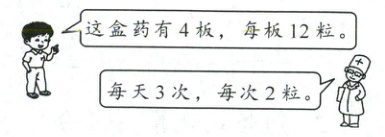 这盒药有4板，每板12粒。
每天3次，每次2粒。